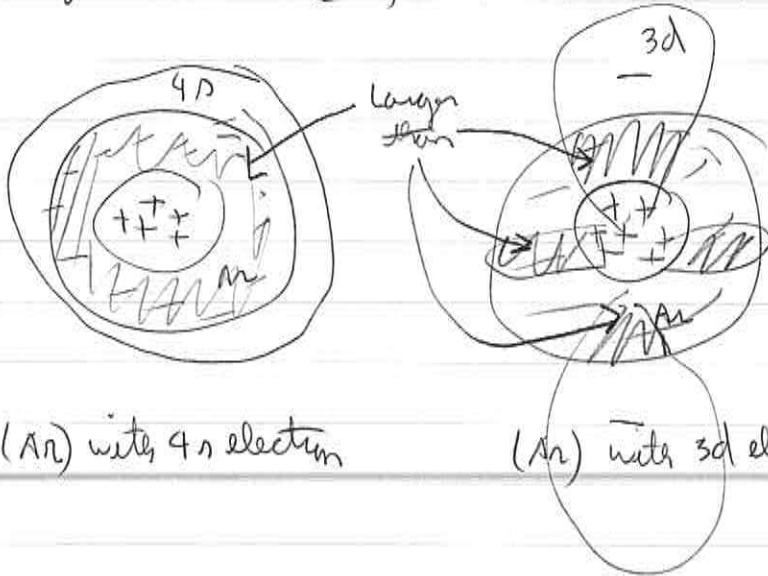 4s
3d
Larger
than
Ar
Ar
(Ar) with 4s electron
(Ar) with 3d el